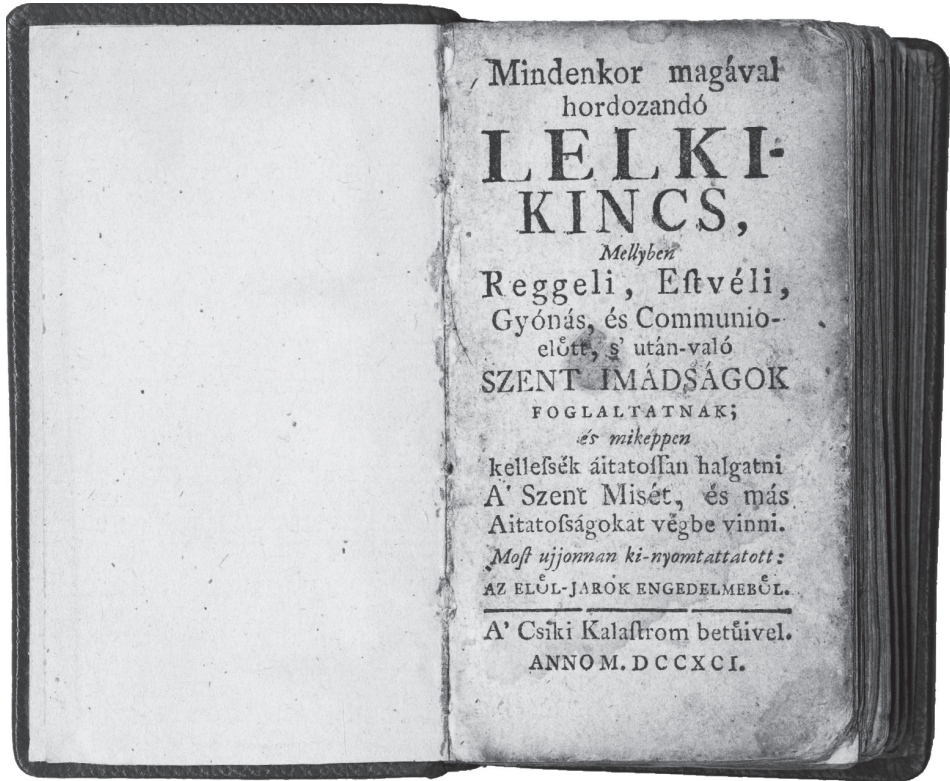 Mindenkor magával
hordozandó
LELKI-
KINCS,
Mellyben
Reggeli, Eſtvéli,
Gyónás, és Communio-
elöͤtt, s' után-való
SZENT IMÁDSÁGOK
FOGLALTATNAK;
és miképpen
kelleſsék áitatoſſan halgatni
A' Szent Misét, és más
Aitatoſságokat végbe vinni.
Moſt ujjonnan ki-nyomtattatott:
AZ ELOͤL-JARÓK ENGEDELMEBOͤL.
A' Csiki Kalaſtrom betuͤivel.
ANNO M. DCCXCI.